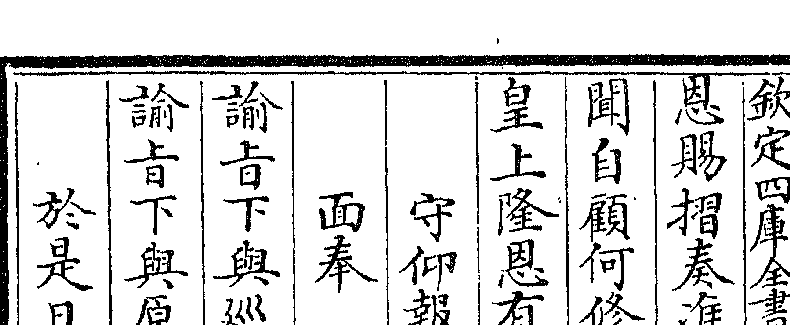 欽定四庫全書
恩賜摺奏准
聞自顧何修
皇上隆恩有
守仰報
面奉
諭旨下與巡
諭旨下與原
於是日